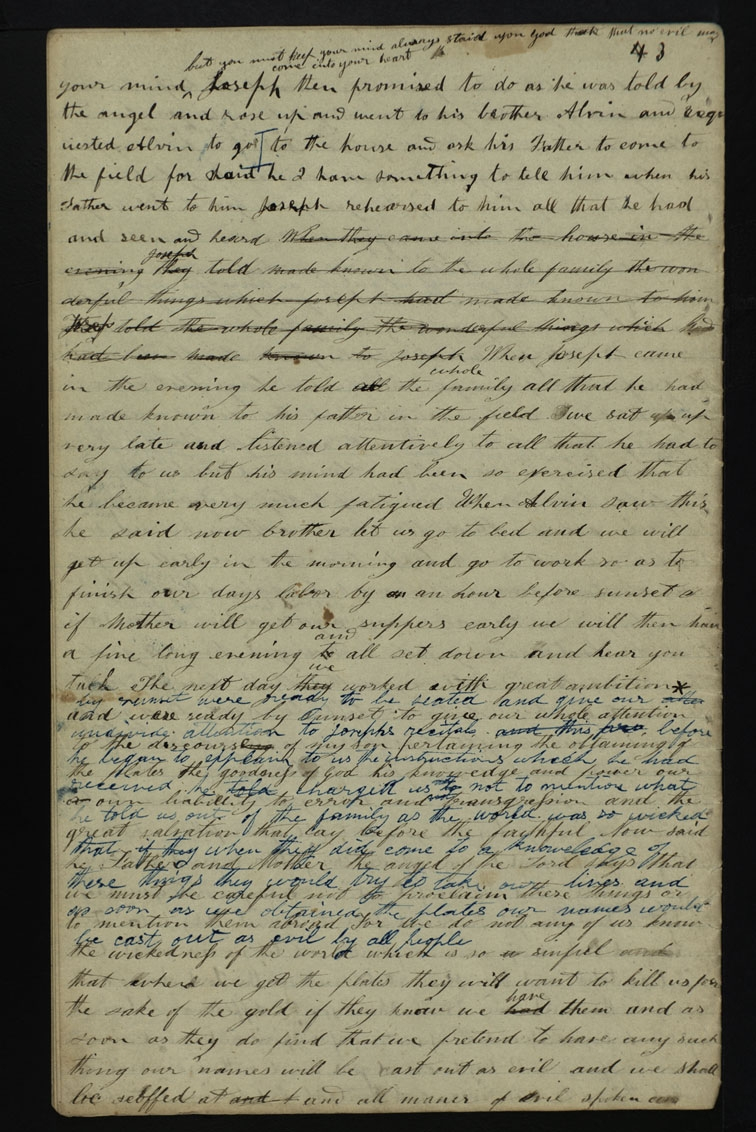 but you must keep your mind always staid upon God that no evil may
come into your heart
43
your mind Joseph then promised to do as he was told by
the angel and rose up and went to his brother Alvin and requ
uested Alvin to go to the house and ask his Father to come to
the field for said he I have something to tell him when his
Father went to him Joseph rehearsed to him all that he had
and seen and heard When they came into the house in the
Joseph
evening they told made known to the whole family the won
derful things which joseph had made known to him
they told the whole family the wonderful things which
had been made known to joseph When Joseph came
whole
in the evening he told all the family all that he had
made known to his father in the field we sat up up
very late and listened attentively to all that he had to
say to us but his mind had been so exercised that
he became very much fatigued When Alvin saw this
he said now brother let us go to bed and we will
get up early in the morning and go to work so as to
finish our days labor by an an hour before sunset a
if Mother will get our suppers early we will then have
and
a fine long evening to all set down and hear you
we
talk The next day they worked with great ambition *
by sunset were ready to be seated and give our
and were ready by Sunset to give our whole attention
undivide attention to Josephs recitals and this before
to the discourse of my son pertaining the obtaining of
he began to explain to us the instructions which he had
the plates the goodness of God his knowledge and power our
received he told chargett us to not to mention what
our liability to error and transgression and the
he told us out of the family as the world was so wicked
great salvation that lay before the faithful Now said
that if they when they did come to a knowledge of
he Father and Mother the angel of the Lord says that
these things they would try to take our lives and
we must be careful not to proclaim these things or
as soon as we obtained the plates our names would
to mention them abroad for we do not any of us know
be cast out as evil by all people
the wickedness of the world which is so sinful and
that when we get the plates they will want to kill us for
have
the sake of the gold if they know we had them and as
soon as they do find that we pretend to have any such
thing our names will be cast out as evil and we shall
be scoffed at and and all maner of evil spoken